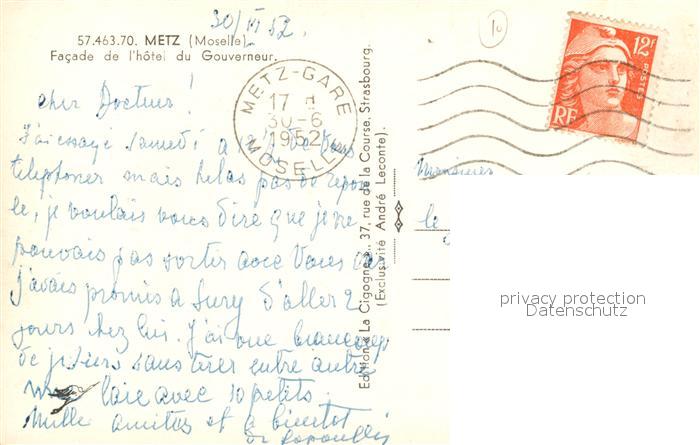 30/VI 52
57.463.70. METZ (Moselle)
Façade de l'hôtel du Gouverneur.
10
12F
POSTES
RF
METZ-GARE
17 H
30-6
1952
MOSELLE
cher Docteur !
J'ai essayé samedi à de Vous
telephoner mais helas pas de repon
se, je voulais vous dire que je ne
pouvais pas sortir avec Vous car
j'avais promis a Sury d'aller 2
jours chez lui. J'ai vue beaucoup
de sans tirer entre autre
une laie avec 10 petits.
Mille amities et a bientot
Editions La Cigogne, 37, rue de la Course, Strasbourg.
(Exclusivité André Leconte).
Monsieur
le
privacy protection
Datenschutz